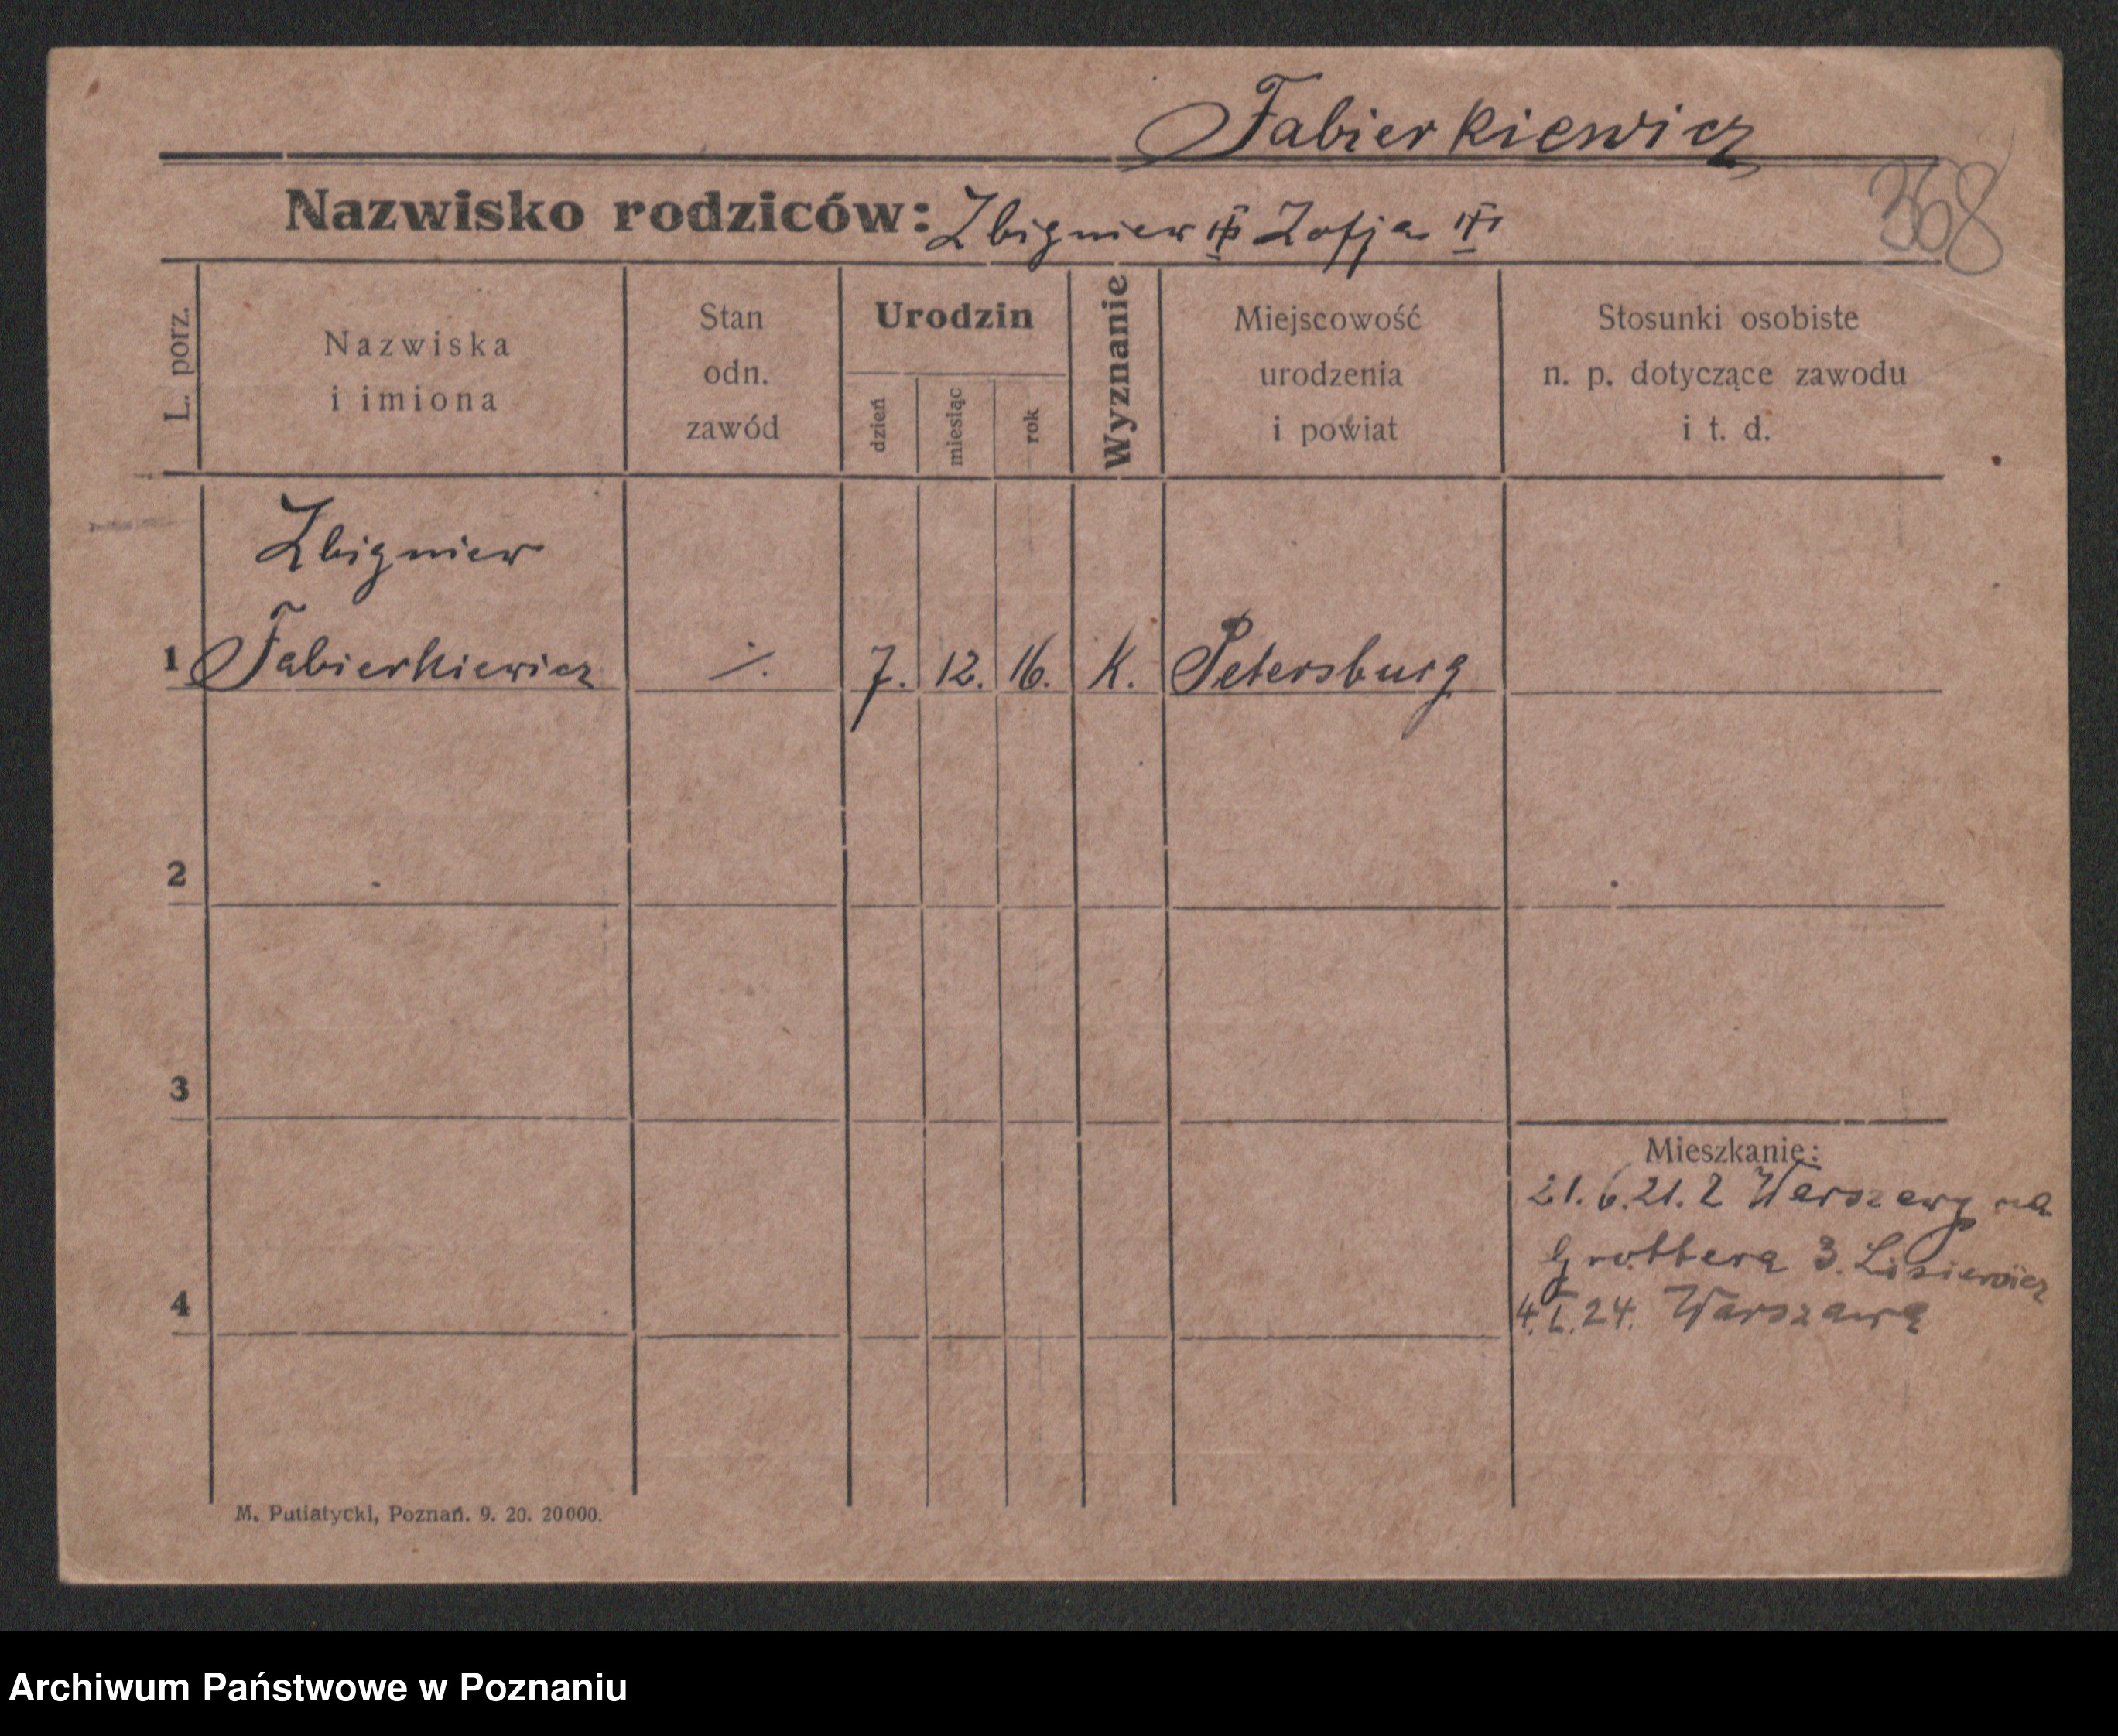 Fabierkiewicz
368
Nazwisko rodziców: Zbigniew Zofja
L. porz.
Nazwiska
i imiona
Stan
odn.
zawód
Urodzin
dzień
miesiąc
rok
Wyznanie
Miejscowość
urodzenia
i powiat
Stosunki osobiste
n. p. dotyczące zawodu
i t. d.
Zbigniew
1 Fabierkiewicz ./. 7. 12. 16. K. Petersburg
2
3
4
Mieszkanie:
21.6.21. z Warszawy na
Grottgera 3. Lisiewicz
4.I.24. Warszawa
M. Putiatycki, Poznań. 9. 20. 20000.
Archiwum Państwowe w Poznaniu